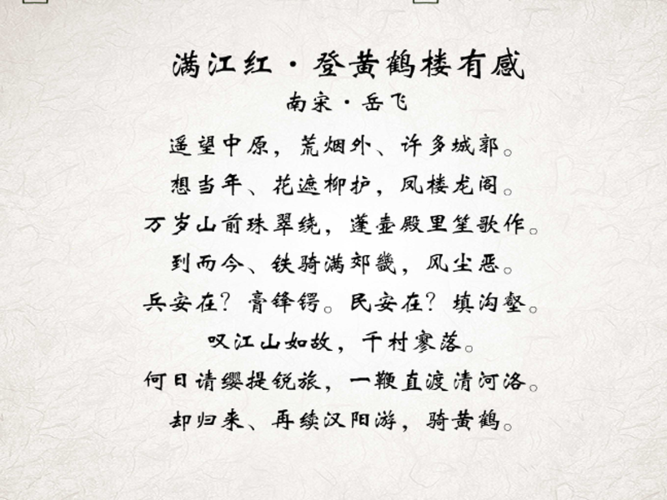 满江红·登黄鹤楼有感
南宋·岳飞
遥望中原，荒烟外、许多城郭。
想当年、花遮柳护，凤楼龙阁。
万岁山前珠翠绕，蓬壶殿里笙歌作。
到而今、铁骑满郊畿，风尘恶。
兵安在？膏锋锷。民安在？填沟壑。
叹江山如故，千村寥落。
何日请缨提锐旅，一鞭直渡清河洛。
却归来、再续汉阳游，骑黄鹤。